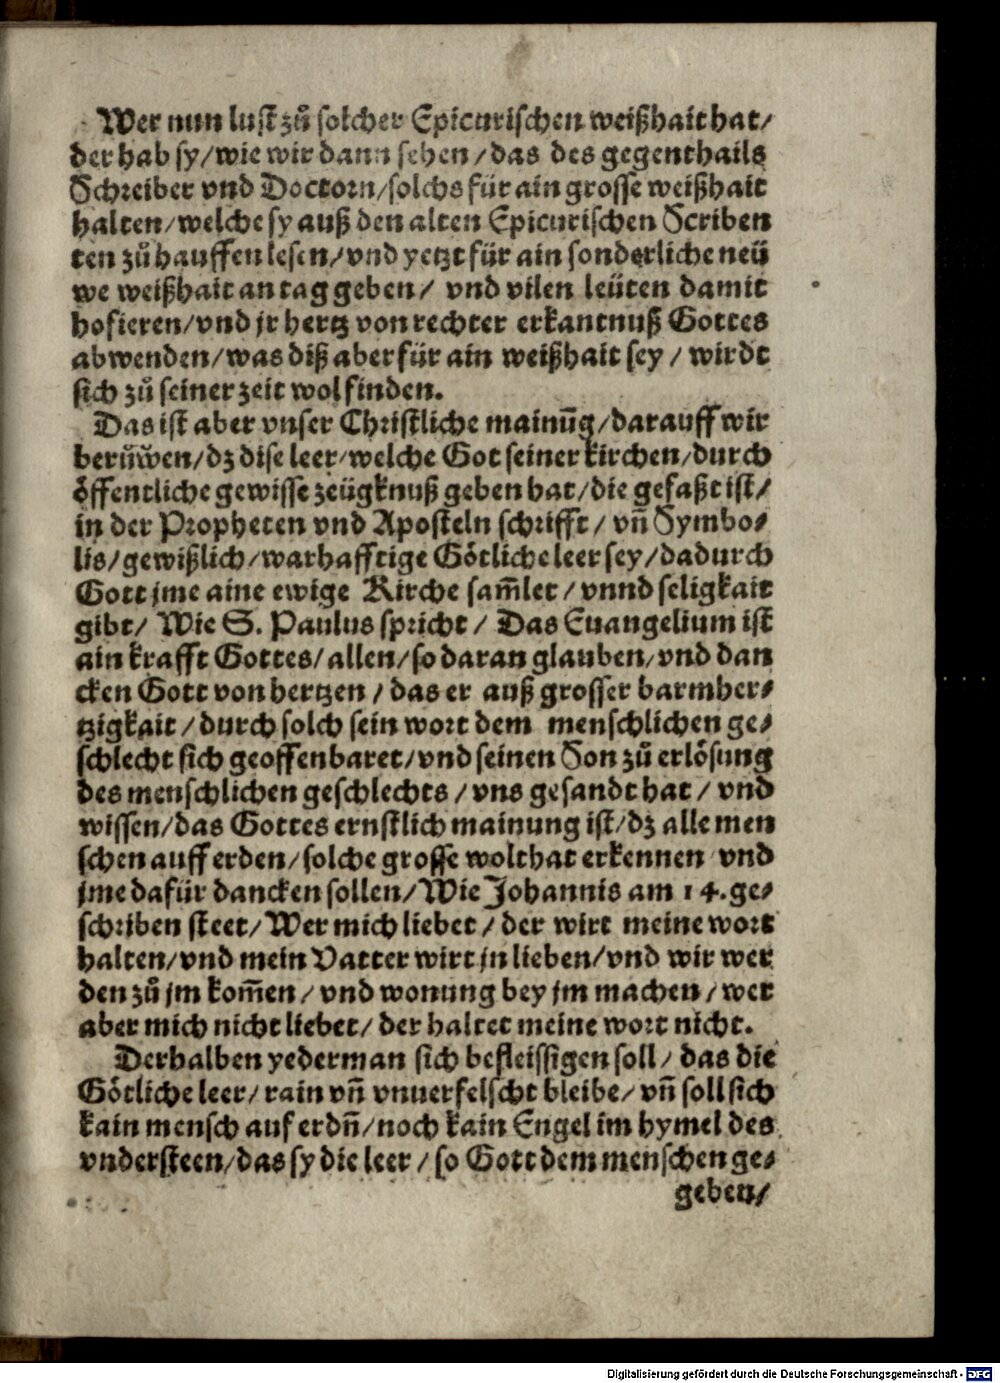 Wer nun lust zuͦ solcher Epicurischen weißhait hat/
der hab sy/wie wir dann sehen/das des gegenthails
Schreiber vnd Doctorn/solchs für ain grosse weißhait
halten/welche sy auß den alten Epicurischen Scriben
ten zuͦ hauffen lesen/vnd yetzt für ain sonderliche neü
we weißhait an tag geben/ vnd vilen leüten damit
hofieren/vnd jr hertz von rechter erkantnuß Gottes
abwenden/was diß aber für ain weißhait sey/ wirdt
sich zuͦ seiner zeit wol finden.
Das ist aber vnser Christliche mainūg/darauff wir
beruͦwen/dz dise leer/welche Got seiner kirchen/durch
öffentliche gewisse zeügknuß geben hat/die gefaßt ist/
in der Propheten vnd Aposteln schrifft/ vñ Symbo⸗
lis/gewißlich/warhafftige Götliche leer sey/dadurch
Gott jme aine ewige Kirche sam̄let/ vnnd seligkait
gibt/ Wie S. Paulus spricht/ Das Euangelium ist
ain krafft Gottes/allen/so daran glauben/vnd dan
cken Gott von hertzen/das er auß grosser barmher⸗
tzigkait/durch solch sein wort dem menschlichen ge⸗
schlecht sich geoffenbaret/vnd seinen Son zuͦ erlösung
des menschlichen geschlechts/vns gesandt hat/ vnd
wissen/das Gottes ernstlich mainung ist/dz alle men
schen auff erden/solche grosse wolthat erkennen vnd
jme dafür dancken sollen/Wie Johannis am 14.ge⸗
schriben steet/Wer mich liebet/der wirt meine wort
halten/vnd mein Vatter wirt jn lieben/vnd wir wer
den zuͦ jm kom̄en/vnd wonung bey jm machen/wer
aber mich nicht liebet/der haltet meine wort nicht.
Derhalben yederman sich befleissigen soll/ das die
Götliche leer/rain vñ vnuerfelscht bleibe/vñ soll sich
kain mensch auf erdñ/noch kain Engel im hymel des
vndersteen/das sy die leer/so Gott dem menschen ge⸗
geben/
Digitalisierung gefördert durch die Deutsche Forschungsgemeinschaft - DFG